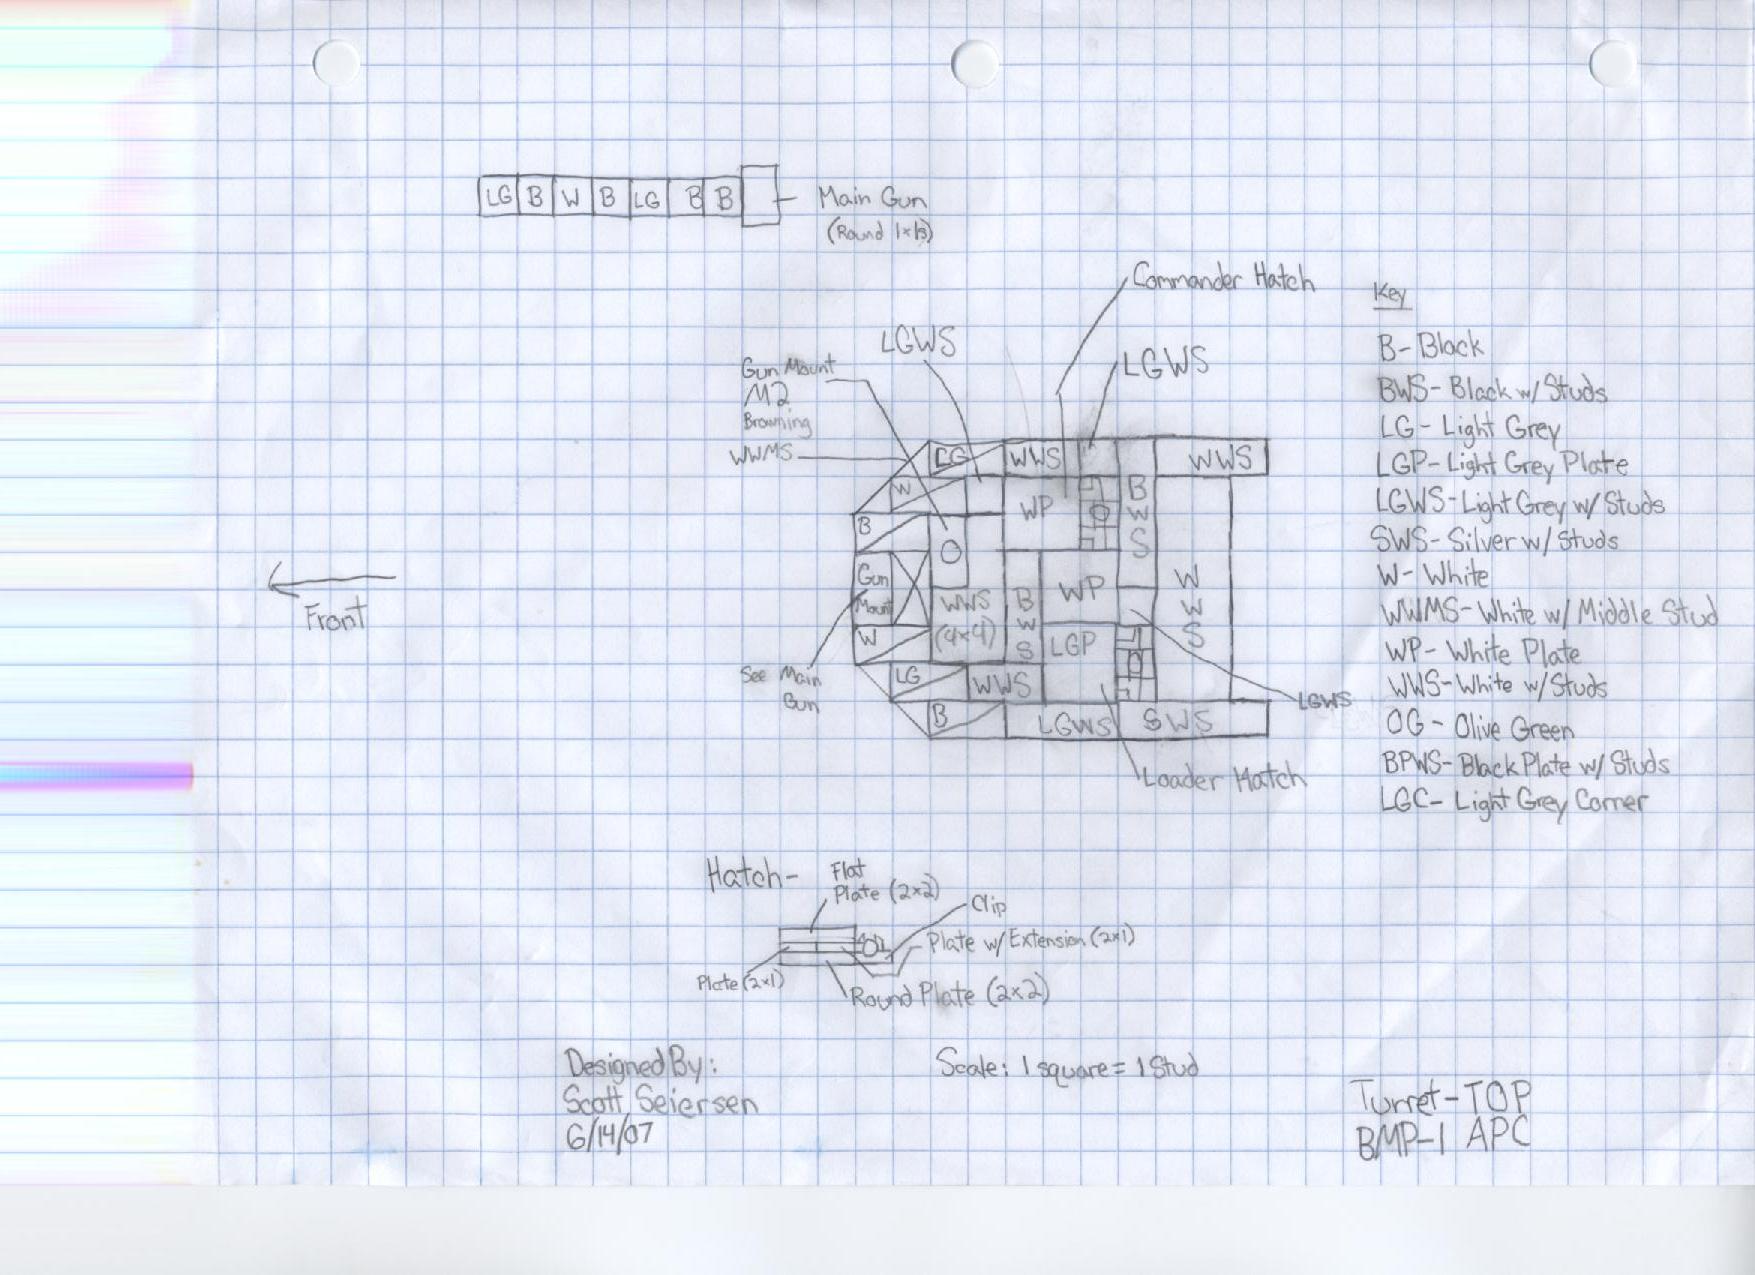 LG B W B LG B B
Main Gun
(Round 1x1s)
Commander Hatch
LGWS
LGWS
Gun Mount
M2
Browning
WWMS
LG
WWS
WWS
W
WP
BWS
B
O
Gun
Mount
WWS
(4x4)
BWS
WP
WWS
W
LGP
LG
WWS
B
LGWS
SWS
LGWS
See Main
Gun
Loader Hatch
Front
Key
B- Black
BWS- Black w/ Studs
LG- Light Grey
LGP- Light Grey Plate
LGWS- Light Grey w/ Studs
SWS- Silver w/ Studs
W- White
WWMS- White w/ Middle Stud
WP- White Plate
WWS- White w/ Studs
OG- Olive Green
BPWS- Black Plate w/ Studs
LGC- Light Grey Corner
Hatch-
Flat
Plate (2x2)
Clip
Plate w/ Extension (2x1)
Plate (2x1)
Round Plate (2x2)
Designed By:
Scott Seiersen
6/14/07
Scale: 1 square = 1 Stud
Turret-TOP
BMP-1 APC